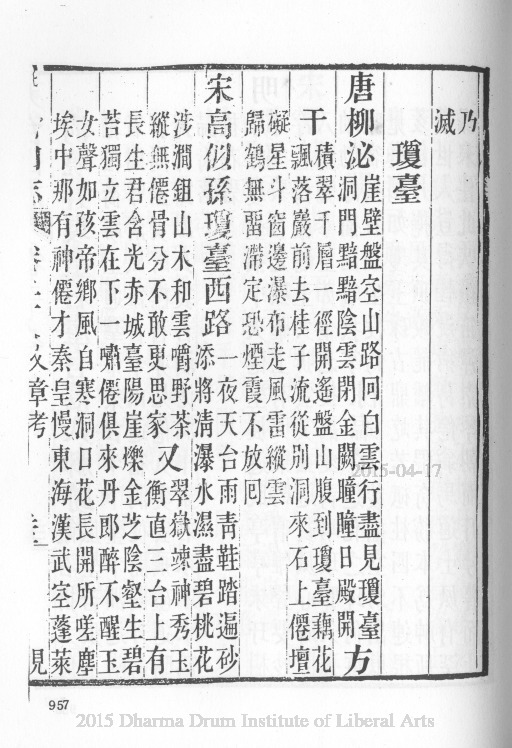 乃
滅
瓊臺
唐柳泌
崖壁盤空山路回白雲行盡見瓊臺
洞門黯黯陰雲閉金闕曈曈日殿開
方
干
積翠千層一徑開遙盤山腹到瓊臺藕花
飄落巖前去桂子流從別洞來石上僊壇
礙星斗窗邊瀑布走風雷縱雲
歸鶴無畱滯定恐煙霞不放回
宋高似孫瓊臺西路
一夜天台雨青鞋踏遍砂
添將清瀑水濕盡碧桃花
涉澗鉏山木和雲嚼野茶
縱無僊骨分不敢更思家
又
翠嶽竦神秀玉
衡直三台上有
長生君含光赤城臺陽崖爍金芝陰壑生碧
苔獨立雲在下一嘯僊俱來丹郎醉不醒玉
女聲如孩帝鄉風自寒洞口花長開所嗟塵
埃中那有神僊才秦皇慢東海漢武空蓬萊
章考
957
2015-04-17
2015 Dharma Drum Institute of Liberal Arts